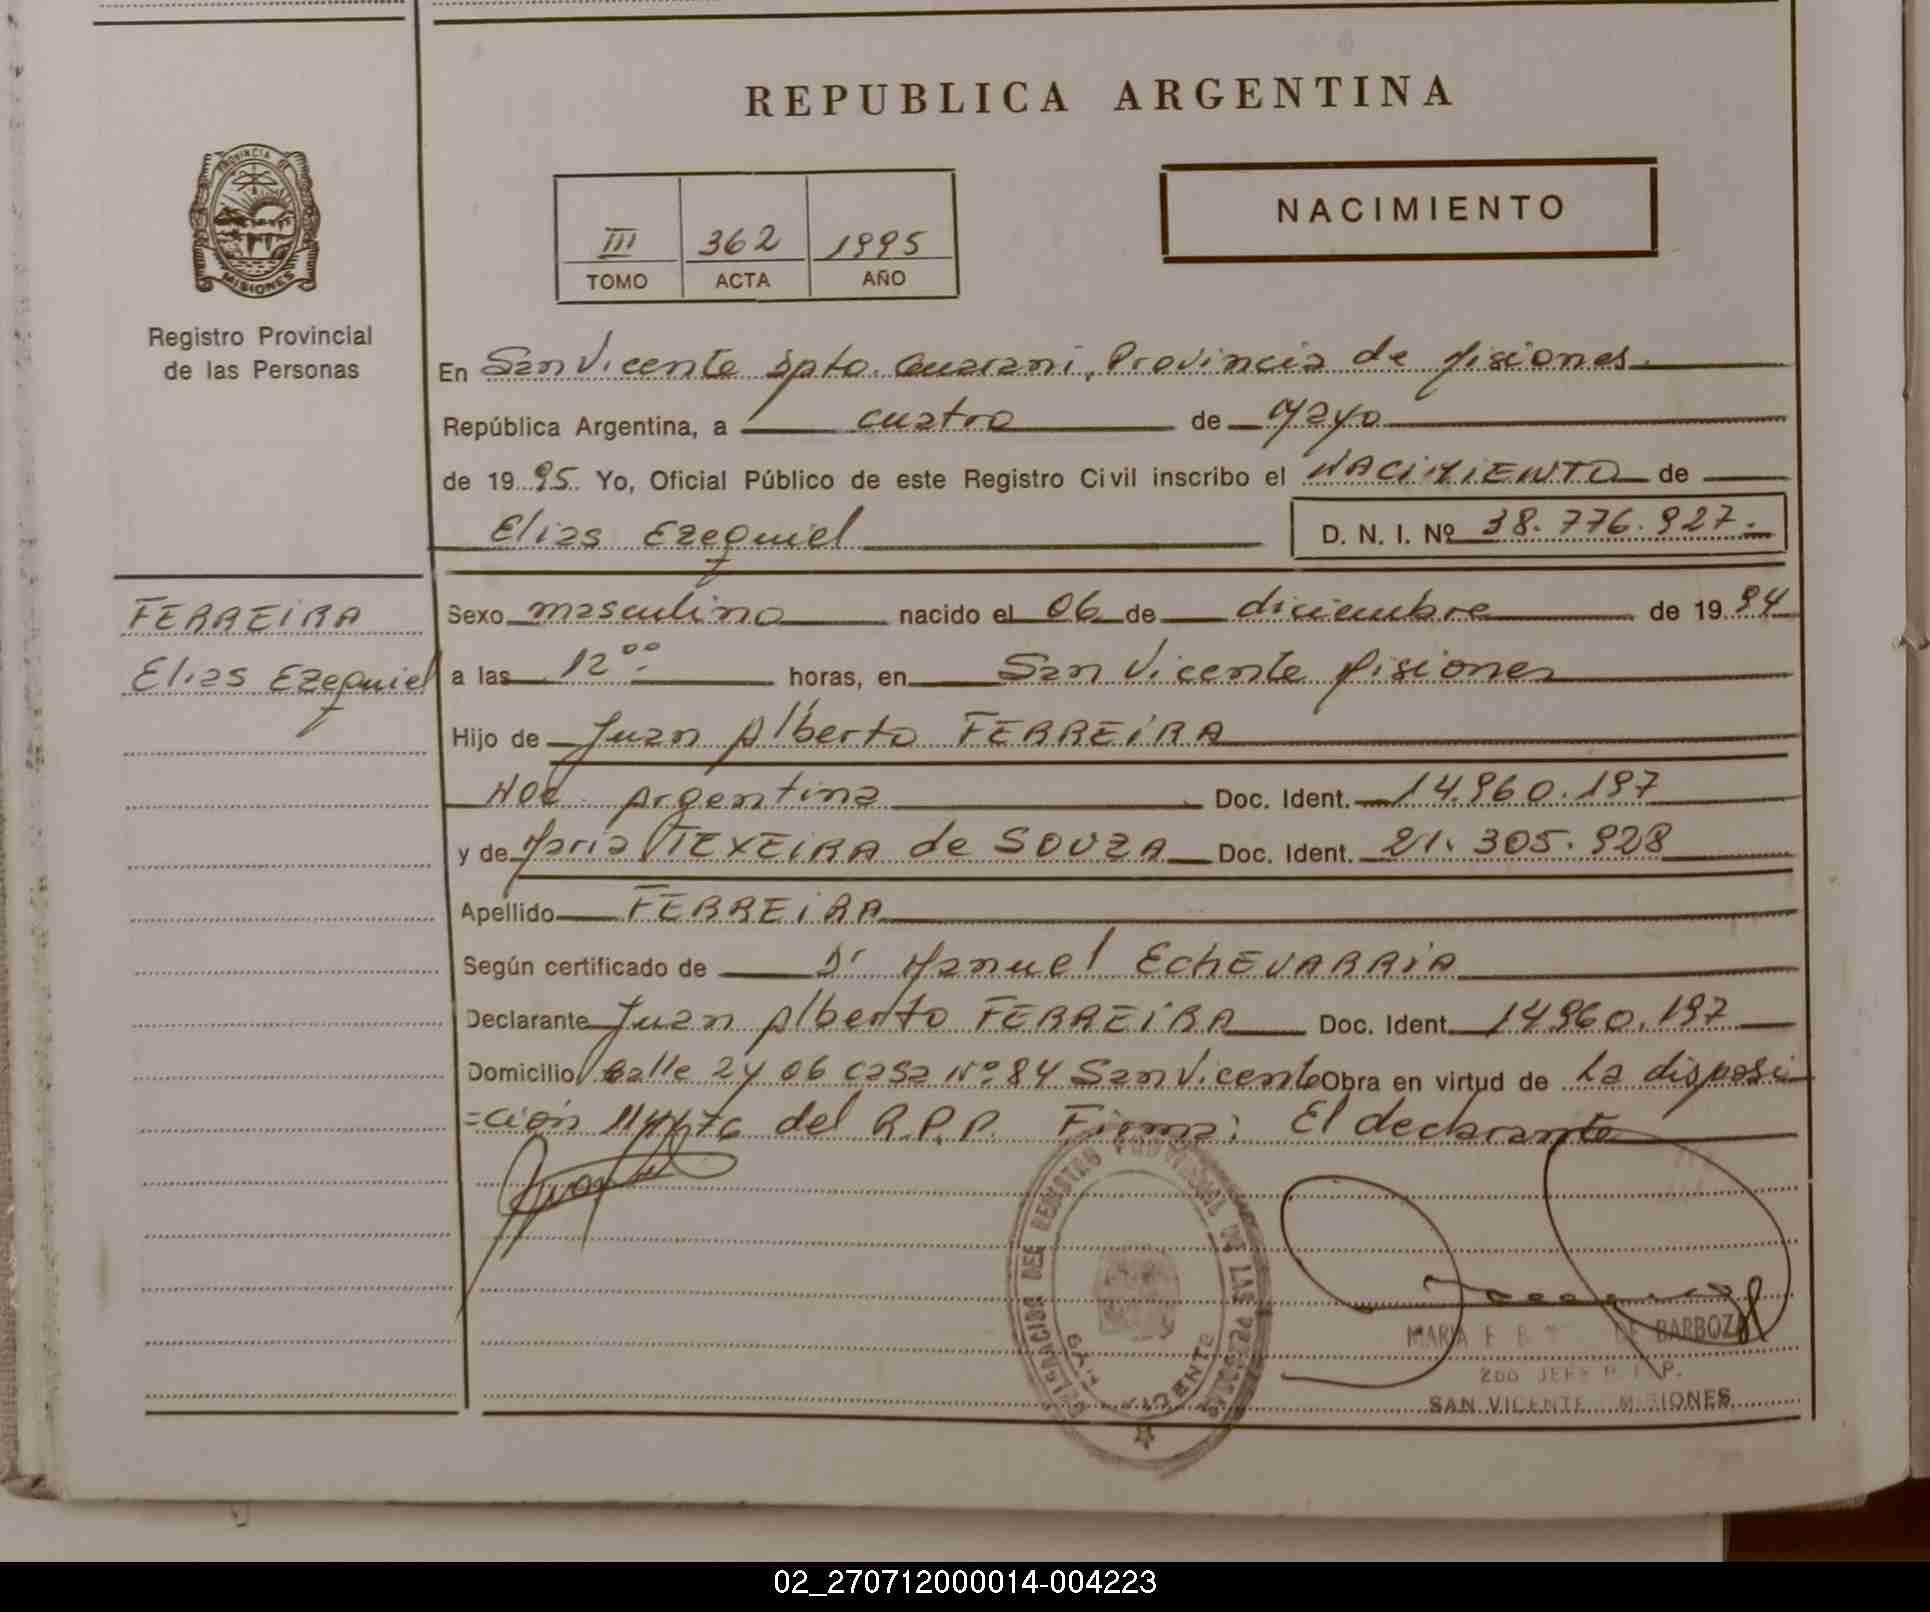 REPUBLICA ARGENTINA
PROVINCIA DE MISIONES
Registro Provincial
de las Personas
III 362 1995
TOMO ACTA AÑO
NACIMIENTO
En San Vicente Dpto. Guarani, Provincia de Misiones.
República Argentina, a cuatro de Mayo
de 1995. Yo, Oficial Público de este Registro Civil inscribo el NACIMIENTO de
Elias Ezequiel D. N. I. Nº 38.776.927.-
FERREIRA
Elias Ezequiel
Sexo masculino nacido el 06 de diciembre de 1994
a las 12 00 horas, en San Vicente Misiones
Hijo de Juan Alberto FERREIRA
Nac. Argentina Doc. Ident. 14.960.197
y de Maria TEXEIRA de SOUZA Doc. Ident. 21.305.928
Apellido FERREIRA
Según certificado de Dr Manuel ECHEVARRIA
Declarante Juan Alberto FERREIRA Doc. Ident. 14960.197
Domicilio Calle 24 06 casa Nº 84 San Vicente Obra en virtud de La disposi
=ción del R.P.P. Firma: El declarante
DEL REGISTRO PROVINCIAL DE LAS PERSONAS
SAN VICENTE
MARIA E. DE BARBOZA
2DO JEFE P.
SAN VICENTE MISIONES
02_270712000014-004223